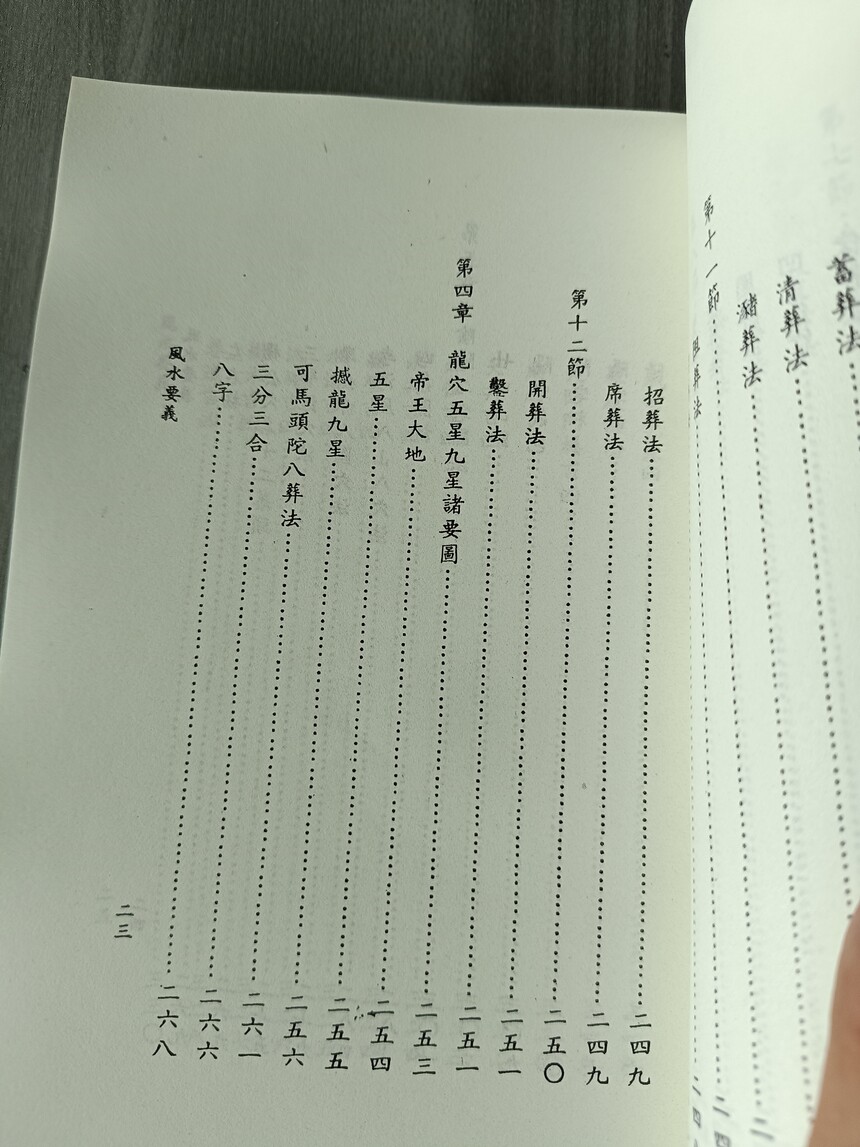 蓄葬法
清葬法
瀦葬法
第十一節
招葬法……二四九
席葬法……二四九
第十二節……二五〇
開葬法……二五一
鑿葬法……二五一
第四章 龍穴五星九星諸要圖……二五三
帝王大地……二五四
五星……二五五
撼龍九星……二五六
可馬頭陀八葬法……二六一
三分三合……二六六
八字……二六八
風水要義
二三